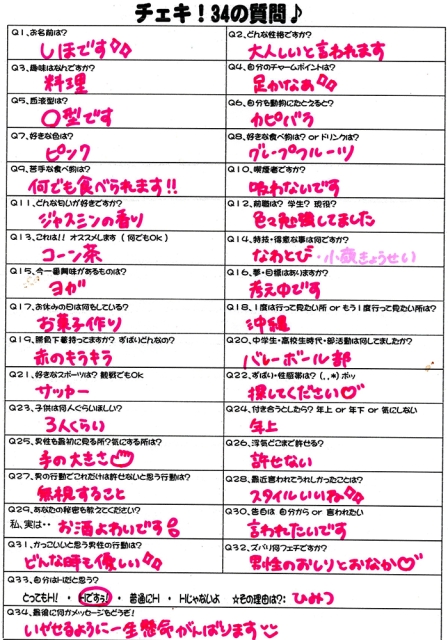 チェキ！34の質問♪
Q1、お名前は？
しほです
Q2、どんな性格ですか？
大人しいと言われます
Q3、趣味はなんですか？
料理
Q4、自分のチャームポイントは？
足かなぁ
Q5、血液型は？
O型です
Q6、自分を動物にたとえると？
カピバラ
Q7、好きな色は？
ピンク
Q8、好きな食べ物は？ or ドリンクは？
グレープフルーツ
Q9、苦手な食べ物は？
何でも食べられます!!
Q10、喫煙者ですか？
吸わないです
Q11、どんな匂いが好きですか？
ジャスミンの香り
Q12、前職は？ 学生？ 現役？
色々勉強してました
Q13、これは!! オススメします （何でもOk）
コーン茶
Q14、特技・得意な事は何ですか？
なわとび・小顔きょうせい
Q15、今一番興味があるものは？
ヨガ
Q16、夢・目標はありますか？
考え中です
Q17、お休みの日は何をしている？
お菓子作り
Q18、1度は行って見たい所 or もう1度行って見たい所は？
沖縄
Q19、勝負下着持ってますか？ ずばりどんなの？
赤のキラキラ
Q20、中学生・高校生時代・部活動は何してましたか？
バレーボール部
Q21、好きなスポーツは？ 観戦でもOk
サッカー
Q22、ずばり・性感帯は？ (,,*) ポッ
探してください♡
Q23、子供は何人ぐらいほしい？
3人くらい
Q24、付き合うとしたら？ 年上 or 年下 or 気にしない
年上
Q25、男性を最初に見る所？気にする所は？
手の大きさ
Q26、浮気どこまで許せる？
許せない
Q27、男の行動でこれだけは許せないと思う行動は？
無視すること
Q28、最近言われてうれしかったことは？
スタイルいいね
Q29、あなたの秘密を教えてください？
私、実は‥ お酒よわいです
Q30、告白は 自分から or 言われたい
言われたいです
Q31、かっこいいと思う男性の行動は？
どんな時も優しい
Q32、ズバリ何フェチですか？
男性のおしりとおなか♡
Q33、自分はHだと思う？
とってもH！ ・ Hですぅ！ ・ 普通にH ・ Hじゃないよ ☆その理由は？： ひみつ
Q34、最後に何かメッセージをどうぞ！
いやせるように一生懸命がんばります